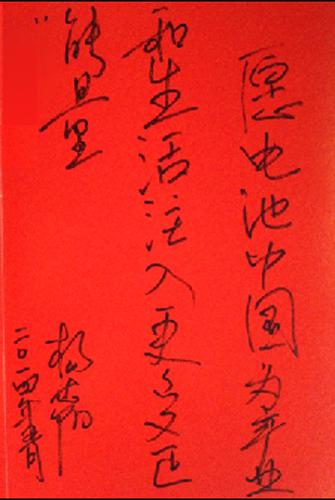 愿电池中国为产业
和生活注入更多正
能量
杨
二〇一四年